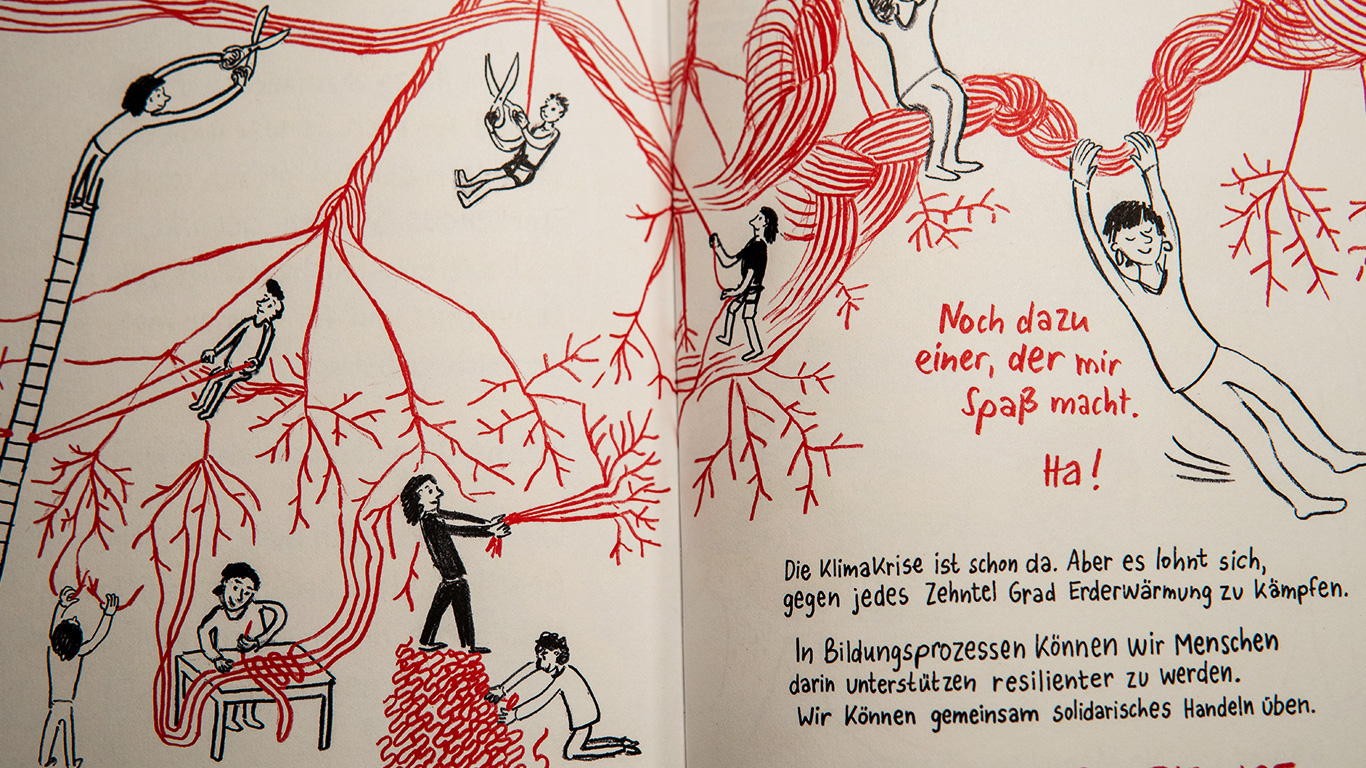 Noch dazu
einer, der mir
Spaß macht.
Ha!
Die Klimakrise ist schon da. Aber es lohnt sich,
gegen jedes Zehntel Grad Erderwärmung zu kämpfen.
In Bildungsprozessen können wir Menschen
darin unterstützen resilienter zu werden.
Wir können gemeinsam solidarisches Handeln üben.